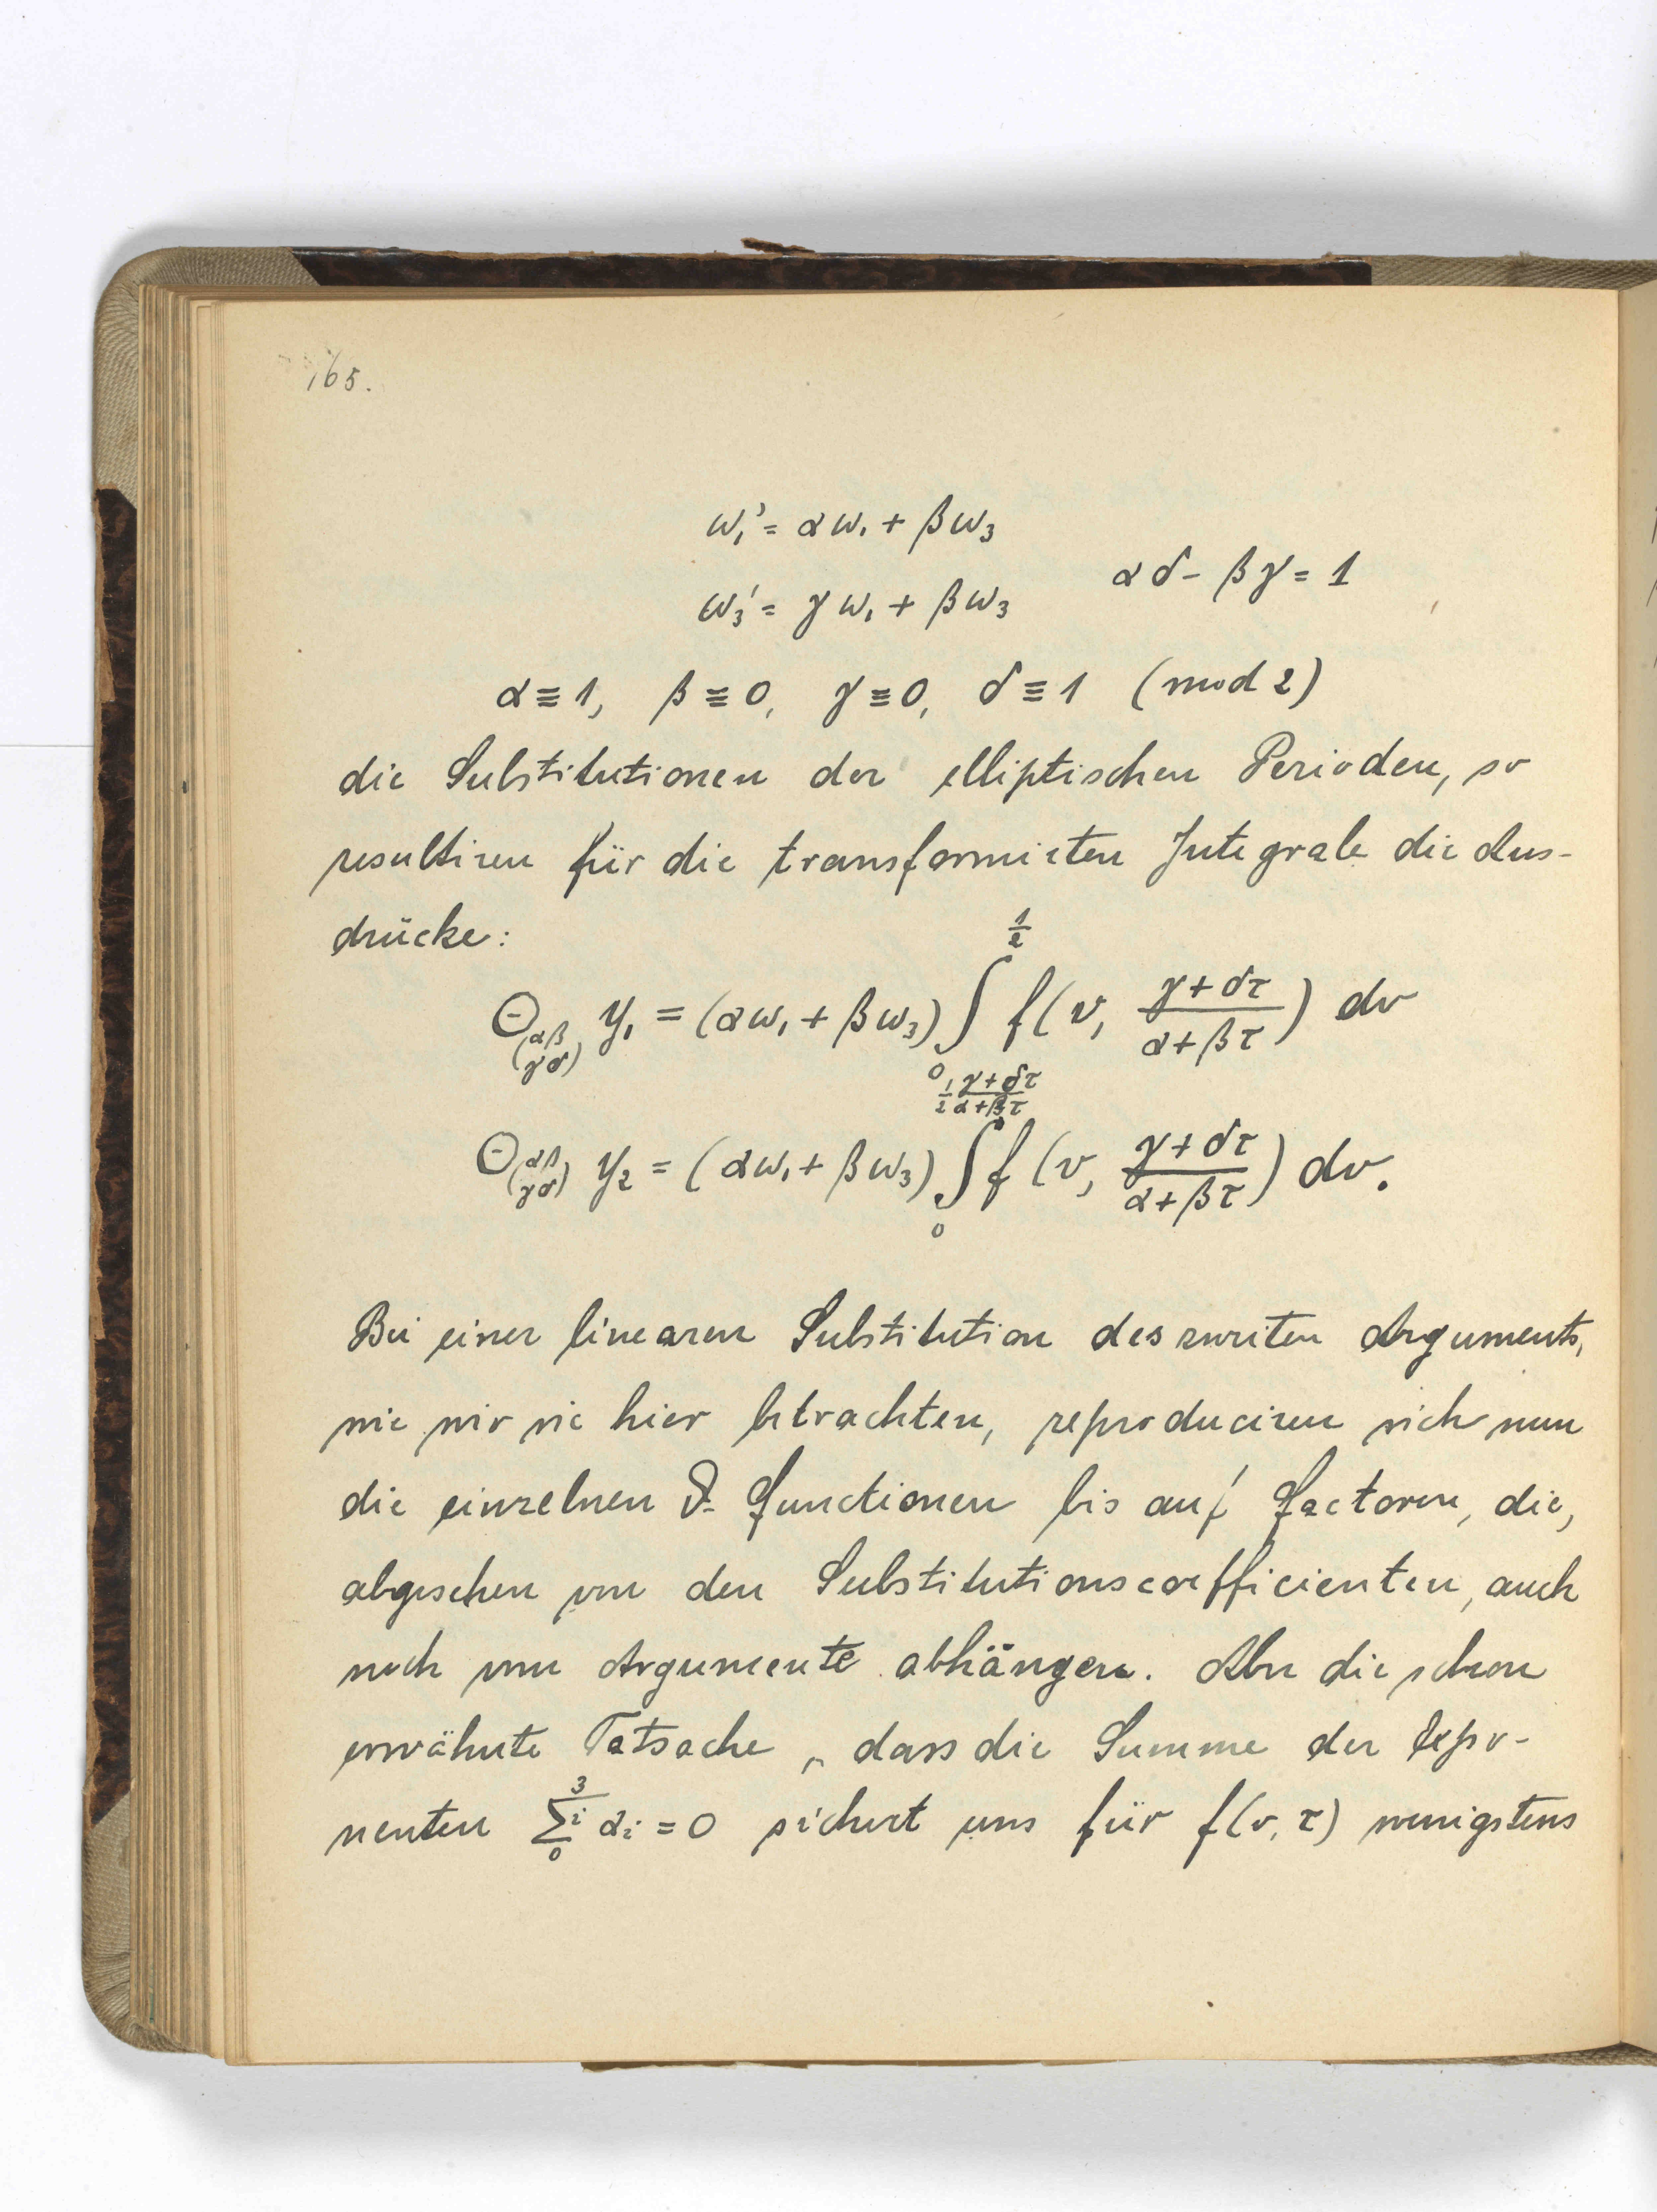 165.
ω₁' = αω₁ + βω₃
αδ - βγ = 1
ω₃' = γω₁ + βω₃
α ≡ 1, β ≡ 0, γ ≡ 0, δ ≡ 1 (mod 2)
die Substitutionen der elliptischen Perioden, so
resultiren für die transformirten Integrale die Aus-
drücke:
Θ_(αβ γδ) y₁ = (αω₁ + βω₃) ∫_0^{1/2} f(v, (γ+δτ)/(α+βτ)) dv
Θ_(αβ γδ) y₂ = (αω₁ + βω₃) ∫_0^{1/2 (γ+δτ)/(α+βτ)} f(v, (γ+δτ)/(α+βτ)) dv.
Bei einer linearen Substitution des zweiten Arguments,
wie wir sie hier betrachten, reproduciren sich nun
die einzelnen ϑ-Functionen bis auf Factoren, die,
abgesehen von den Substitutionscoefficienten, auch
noch vom Argumente abhängen. Aber die schon
erwähnte Tatsache, dass die Summe der Expo-
nenten ∑_0^3 i αi = 0 sichert uns für f(v, τ) wenigstens